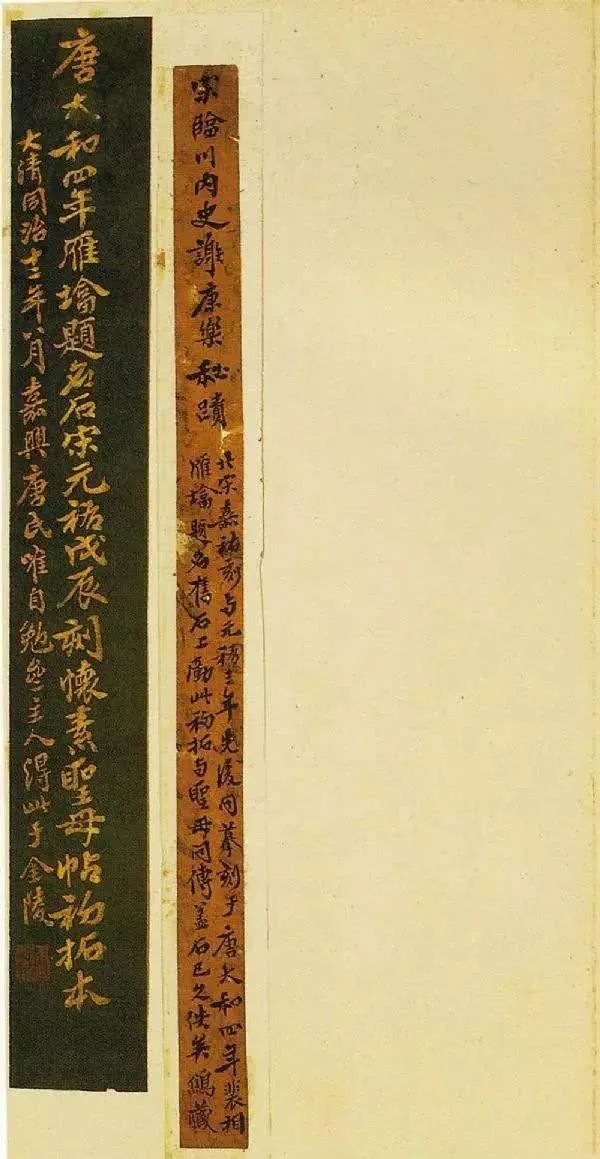 宋臨川內史謝康樂秘蹟
北宋嘉祐刻与元祐三年先後同摹刻于唐大和四年裴相
雁墖題名舊石上此初拓与聖母同傳蓋石已久佚矣鷦藏
唐大和四年雁墖題名石宋元祐戊辰刻懷素聖母帖初拓本
大清同治十三年八月嘉興唐氏唯自勉齋主人得此于金陵